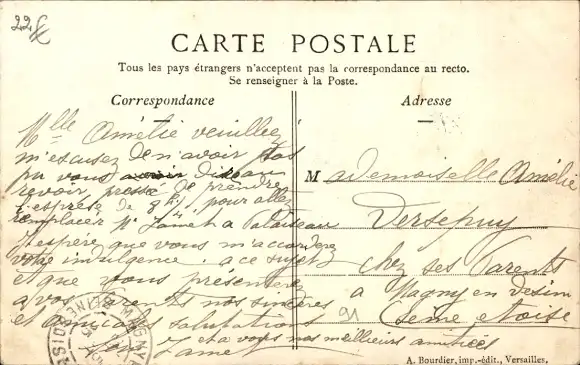 22 €
CARTE POSTALE
Tous les pays étrangers n'acceptent pas la correspondance au recto.
Se renseigner à la Poste.
Correspondance
Mlle Amélie veuillez
m'escusez de n'avoir pas
pu vous avoir dis au
revoir, pressé de prendre
l'espress de 8h½ pour allez
remplacer Mr à Palaiseau
J'espère que vous m'accorderez
votre indulgence a ce sujet
et que vous présenterez
a vos parents nos sincères
et amicales salutations
et a vous nos meilleures amitiées
Adresse
Mademoiselle Amélie
Dersepuy
chez ses Parents
a Magny en Vexin
91 Seine et Oise
A. Bourdier, imp.-édit., Versailles.